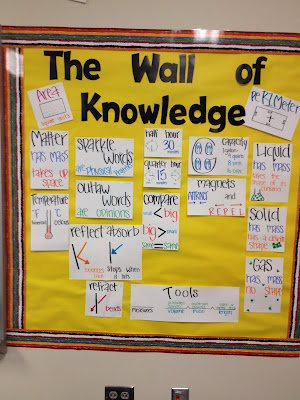 The Wall of
Knowledge
Area
Perimeter
Matter
has mass
takes up
space
Temperature
F C
Sparkle
words
are physical
outlaw
words
are opinions
reflect
bounces
back
absorb
stops when
it hits
refract
bends
half hour
30
minutes
quarter hour
15
minutes
compare
< big
big >
same = same
Capacity
magnets
Attract and
REPEL
Tools
measures
volume
mass
length
Liquid
has mass
takes the
shape of its
container
Solid
has mass
has a definite
shape
Gas
has mass
no shape